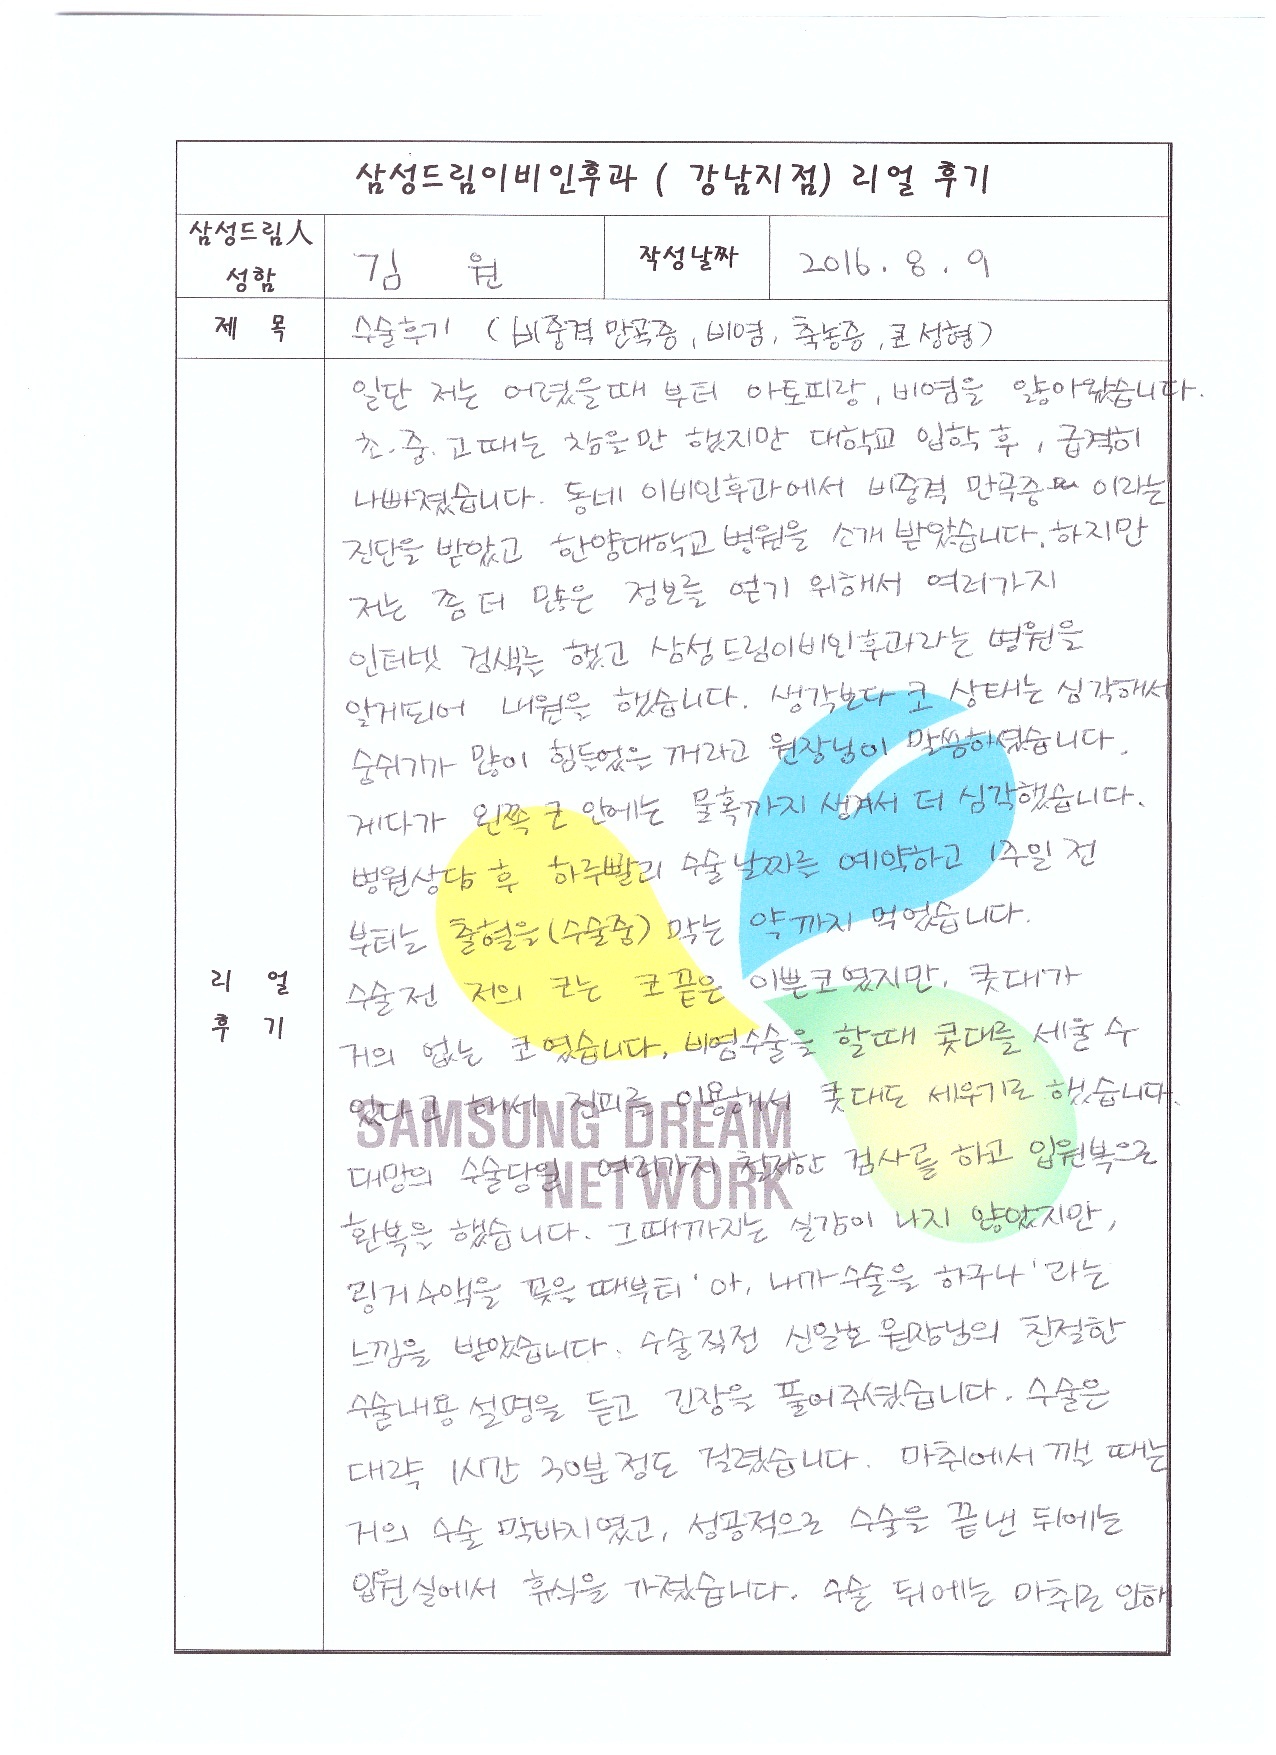 삼성드림이비인후과 ( 강남지점) 리얼 후기
삼성드림人
성함
김 원
작성날짜
2016. 8. 9
제 목
수술후기 (비중격 만곡증, 비염, 축농증, 코 성형)
리 얼
후 기
일단 저는 어렸을때 부터 아토피랑, 비염을 앓아왔습니다.
초.중.고때는 참을만 했지만 대학교 입학 후, 급격히
나빠졌습니다. 동네 이비인후과에서 비중격 만곡증 이라는
진단을 받았고 한양대학교 병원을 소개 받았습니다. 하지만
저는 좀 더 많은 정보를 얻기 위해서 여러가지
인터넷 검색는 했고 삼성드림이비인후과라는 병원을
알게되어 내원을 했습니다. 생각보다 코 상태는 심각해서
숨쉬기가 많이 힘들었을 꺼라고 원장님이 말씀하셨습니다.
게다가 왼쪽 코 안에는 물혹까지 생겨서 더 심각했습니다.
병원상담 후 하루빨리 수술날짜를 예약하고 1주일 전
부터는 출혈을(수술중) 막는 약까지 먹었습니다.
수술전 저의 코는 코끝은 이쁜코였지만, 콧대가
거의 없는 코였습니다. 비염수술을 할때 콧대를 세울 수
있다고 해서 진피를 이용해서 콧대도 세우기로 했습니다.
대망의 수술당일 여러가지 철저한 검사를 하고 입원복으로
환복을 했습니다. 그때까지는 실감이 나지 않았지만,
링거수액을 꽂을 때부터 '아, 내가 수술을 하구나' 라는
느낌을 받았습니다. 수술직전 신일호 원장님의 친절한
수술내용 설명을 듣고 긴장을 풀어주셨습니다. 수술은
대략 1시간 30분 정도 걸렸습니다. 마취에서 깰 때는
거의 수술 막바지였고, 성공적으로 수술을 끝낸 뒤에는
입원실에서 휴식을 가졌습니다. 수술 뒤에는 마취로 인해
SAMSUNG DREAM
NETWORK